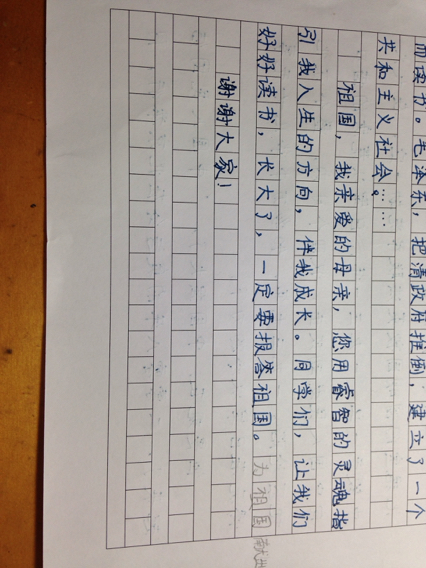 而读书。毛泽东，把清政府推倒，建立了一个
共和主义社会。……
祖国，我亲爱的母亲，您用睿智的灵魂指
引我人生的方向，伴我成长。同学们，让我们
好好读书，长大了，一定要报答祖国。为祖国
谢谢大家！